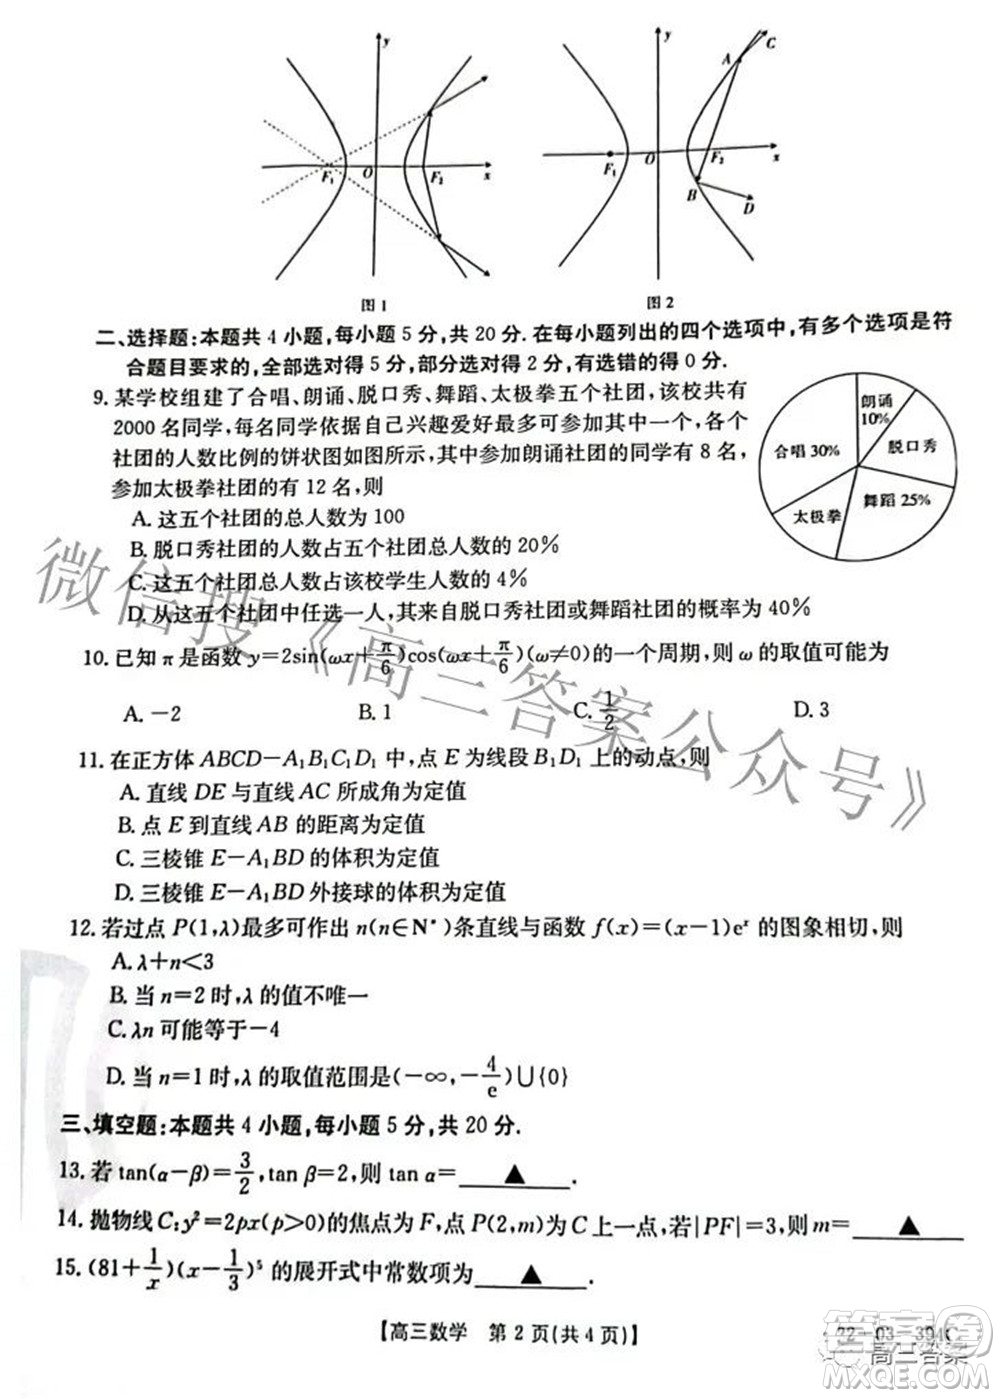 y
F₁
O
F₂
x
图1
y
A
C
F₁
O
F₂
x
B
D
图2
二、选择题:本题共4小题,每小题5分,共20分.在每小题列出的四个选项中,有多个选项是符
合题目要求的,全部选对得5分,部分选对得2分,有选错的得0分.
9.某学校组建了合唱、朗诵、脱口秀、舞蹈、太极拳五个社团,该校共有
2000名同学,每名同学依据自己兴趣爱好最多可参加其中一个,各个
社团的人数比例的饼状图如图所示,其中参加朗诵社团的同学有8名,
参加太极拳社团的有12名,则
A.这五个社团的总人数为100
B.脱口秀社团的人数占五个社团总人数的20%
C.这五个社团总人数占该校学生人数的4%
D.从这五个社团中任选一人,其来自脱口秀社团或舞蹈社团的概率为40%
朗诵
10%
合唱 30%
脱口秀
舞蹈 25%
太极拳
10.已知π是函数y=2sin(ωx+π/6)cos(ωx+π/6)(ω≠0)的一个周期,则ω的取值可能为
A.-2 B.1 C.1/2 D.3
11.在正方体ABCD-A₁B₁C₁D₁中,点E为线段B₁D₁上的动点,则
A.直线DE与直线AC所成角为定值
B.点E到直线AB的距离为定值
C.三棱锥E-A₁BD的体积为定值
D.三棱锥E-A₁BD外接球的体积为定值
12.若过点P(1,λ)最多可作出n(n∈N*)条直线与函数f(x)=(x-1)eˣ的图象相切,则
A.λ+n<3
B.当n=2时,λ的值不唯一
C.λn可能等于-4
D.当n=1时,λ的取值范围是(-∞,-4/e)∪{0}
三、填空题:本题共4小题,每小题5分,共20分.
13.若tan(α-β)=3/2,tan β=2,则tan α=▲
14.抛物线C:y²=2px(p>0)的焦点为F,点P(2,m)为C上一点,若|PF|=3,则m=▲
15.(81+1/x)(x-1/3)⁵的展开式中常数项为▲.
【高三数学 第2页(共4页)】
22-03-394C
微信搜《高三答案公众号》
高三答案
MXQE.COM